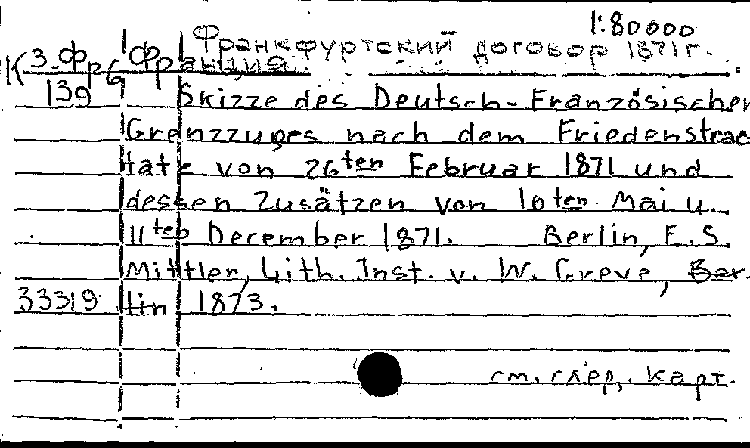 1:80000
Франкфуртский договор 1871г.
К 3-Фр 6 Франция.
139 Skizze des Deutsch-Französischen
Grenzzuges nach dem Friedenstrac
tate von 26ten Februar 1871 und
dessen Zusätzen von 10ten Mai u.
11ten December 1871. Berlin, E.S.
Mittler, Lith. Inst. v. W. Greve, Ber-
33319 lin 1873.
см. след. карт.